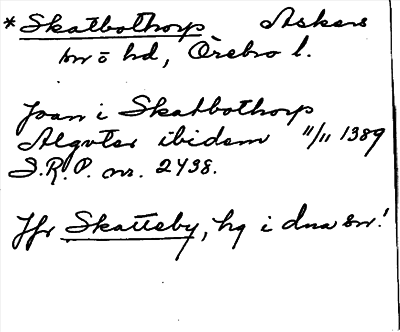 *Skatbothorp Askers
sn o hd, Örebro l.
Joan i Skatbothorp
Algoter ibidem 11/11 1389
S.R.P. nr. 2438.
Jfr Skatteby, hg i dna sn!